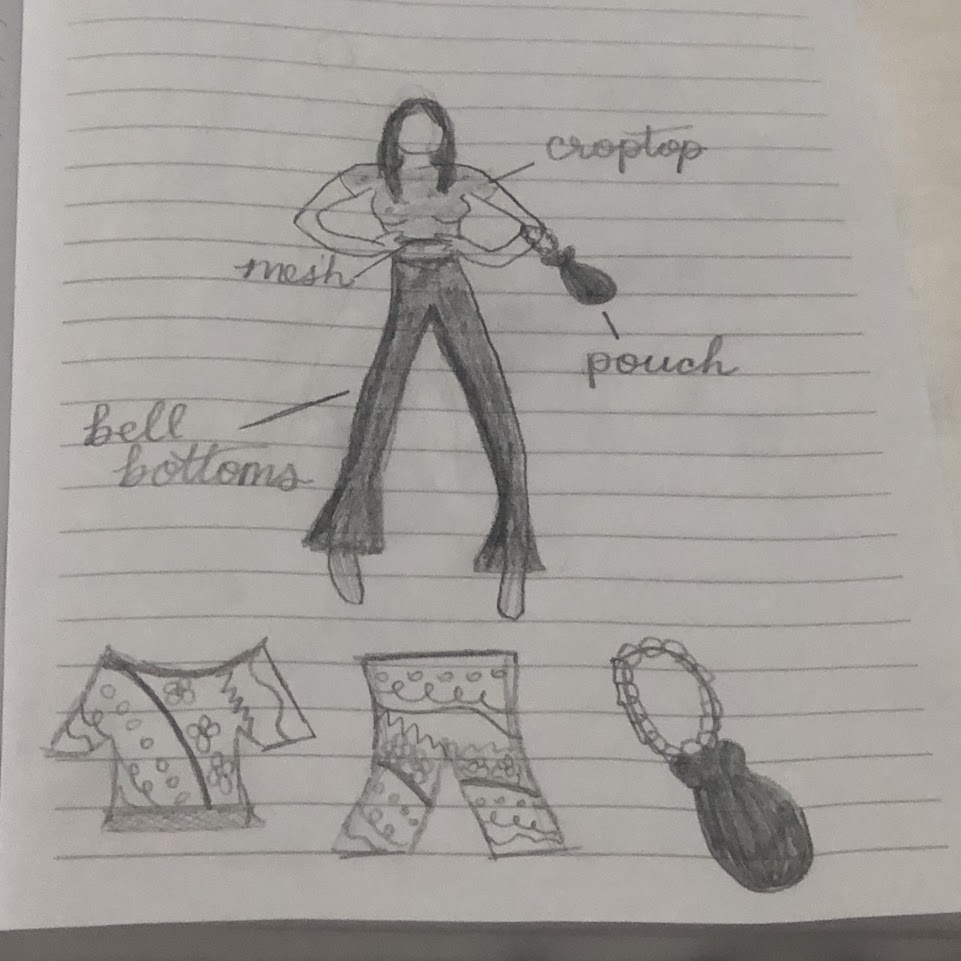 croptop
mesh
pouch
bell
bottoms